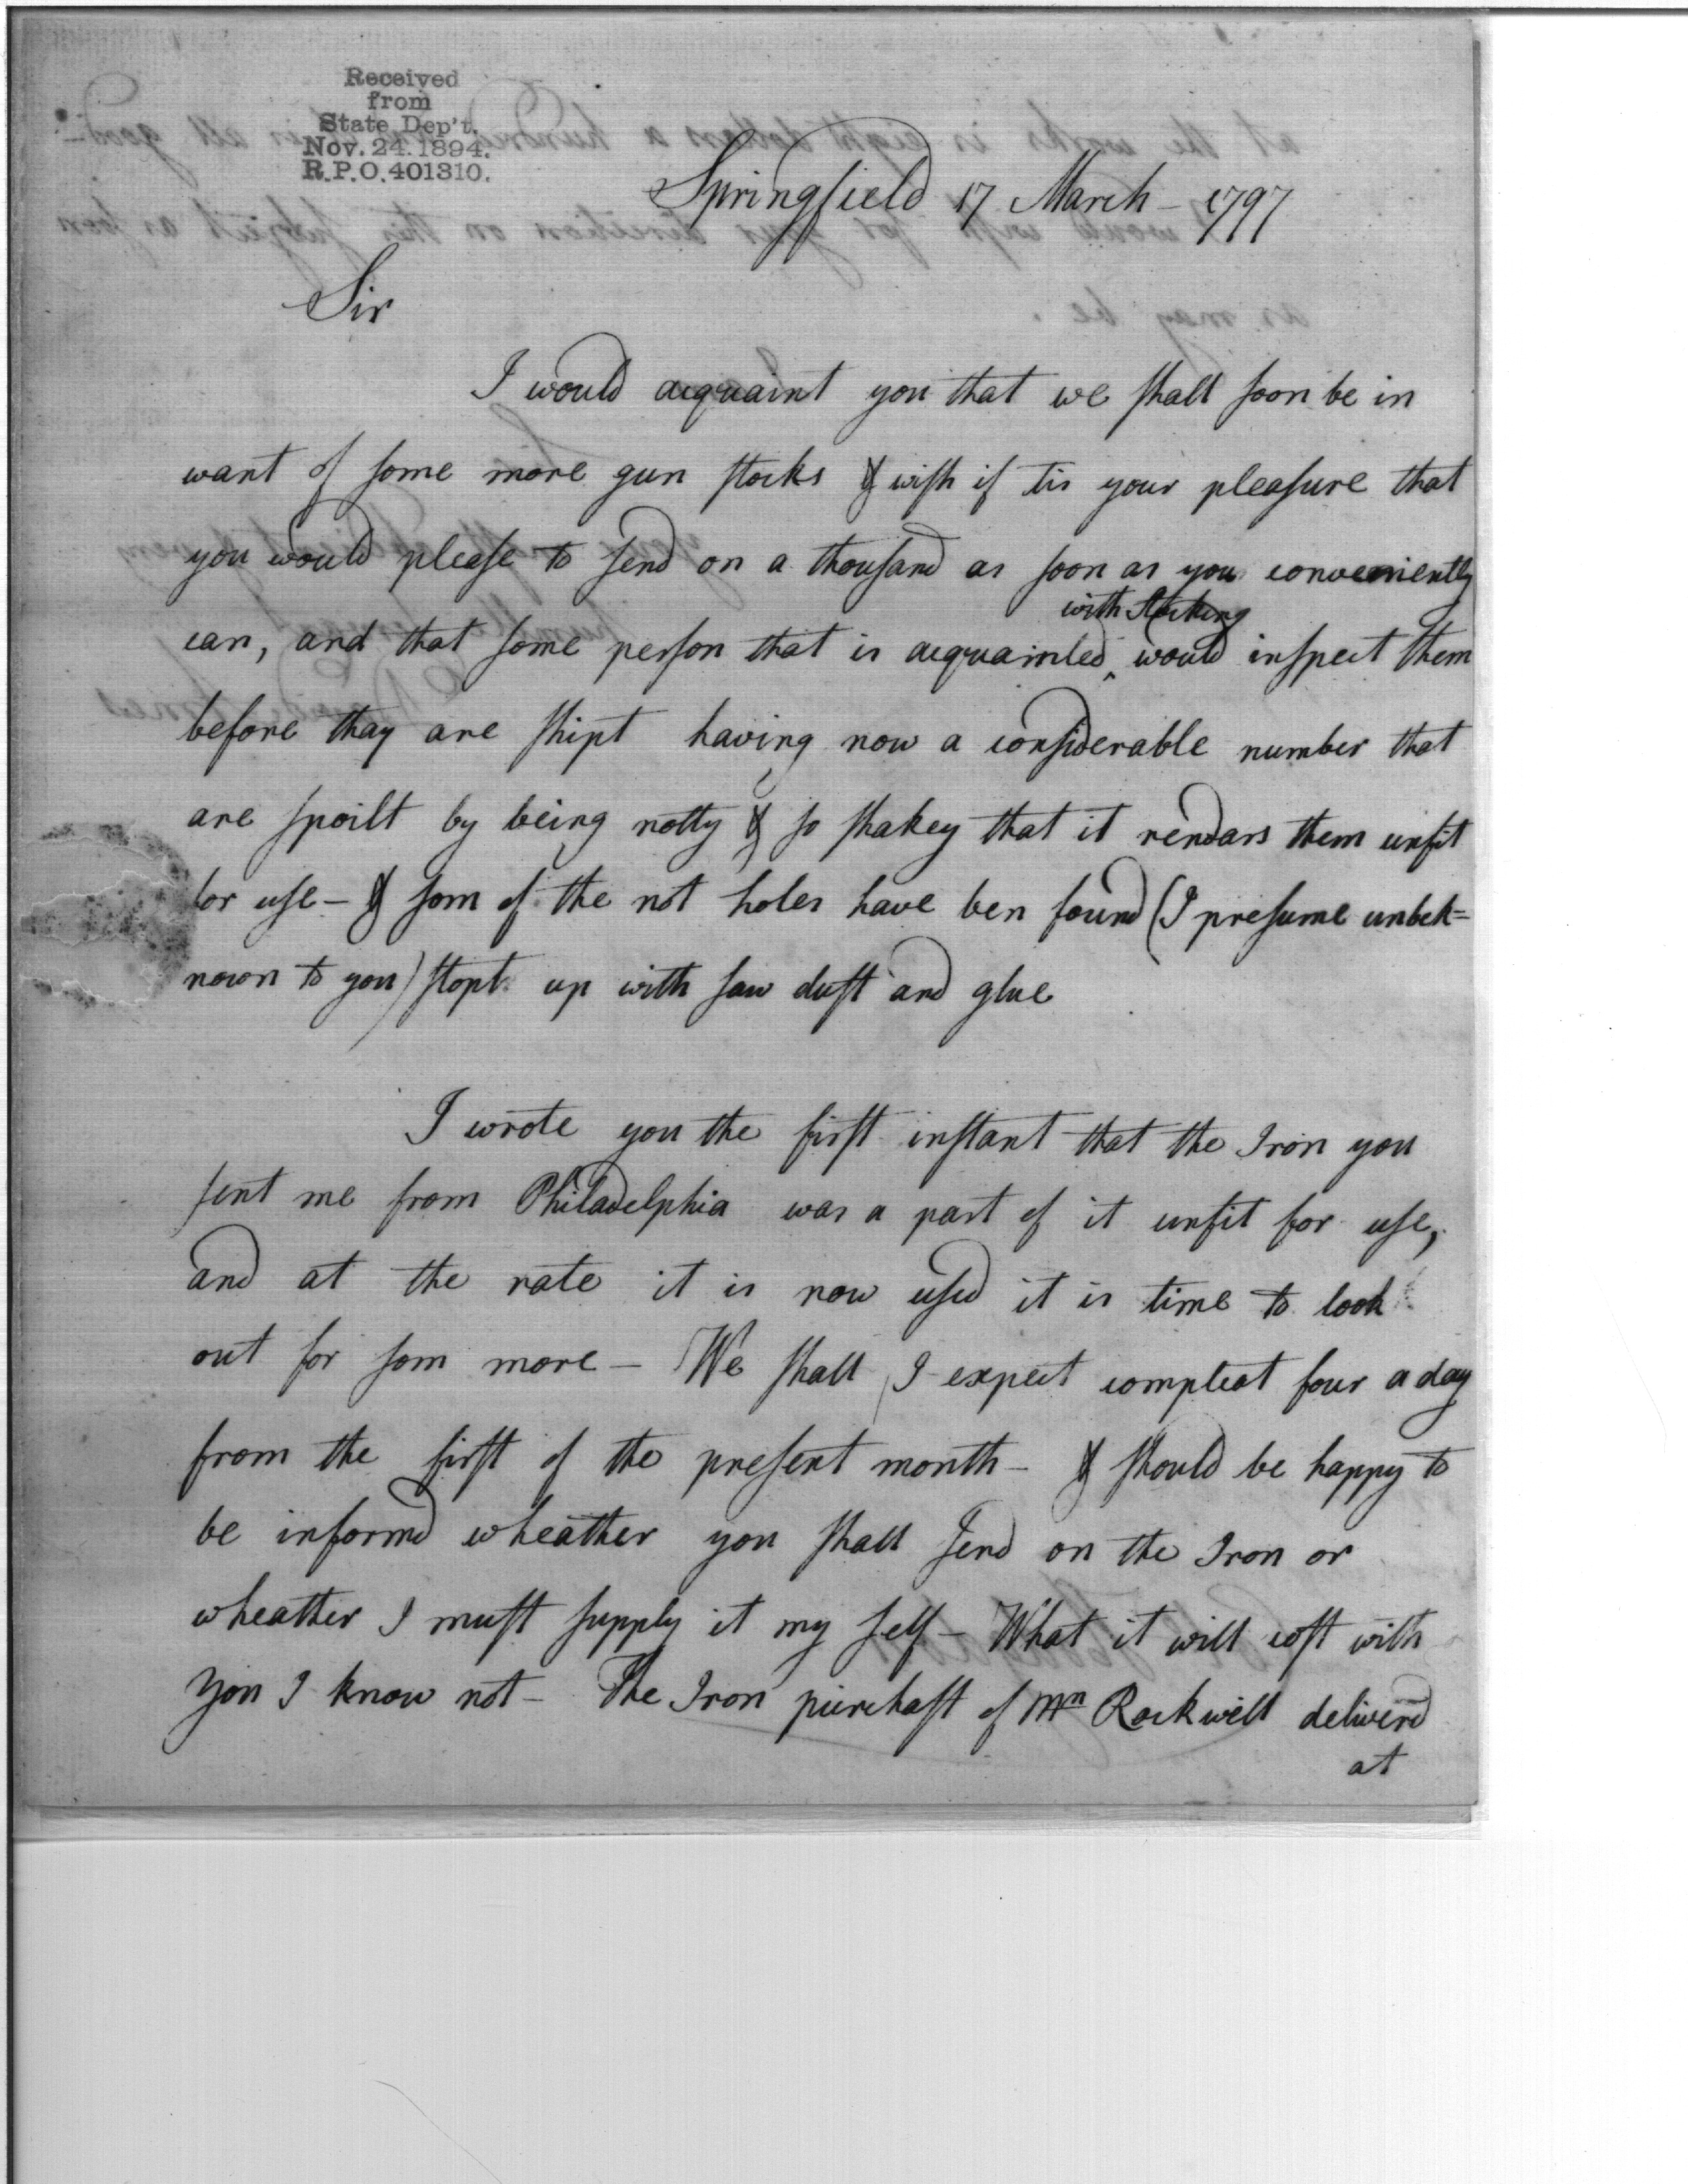 Received
from
State Dep't.
Nov. 24. 1894.
R.P.O. 401310.
Springfield 17 March - 1797
Sir
I would acquaint you that we shall soon be in
want of some more gun stocks & wish if tis your pleasure that
you would please to send on a thousand as soon as you conveniently
with Stocking
can, and that some person that is acquainted ‸ would inspect them
before thay are shipt having now a considerable number that
are spoilt by being notty & so shakey that it rendars them unfit
for use - & som of the not holes have ben found (I presume unbek=
nown to you) stopt up with saw dust and glue
I wrote you the first instant that the Iron you
sent me from Philadelphia was a part of it unfit for use,
and at the rate it is now used it is time to look
out for som more - We shall I expect compleat four a day
from the first of the present month - & should be happy to
be informd wheather you shall send on the Iron or
wheather I must supply it my self - What it will cost with
you I know not - The Iron purchast of Mr Rockwell deliverd
at